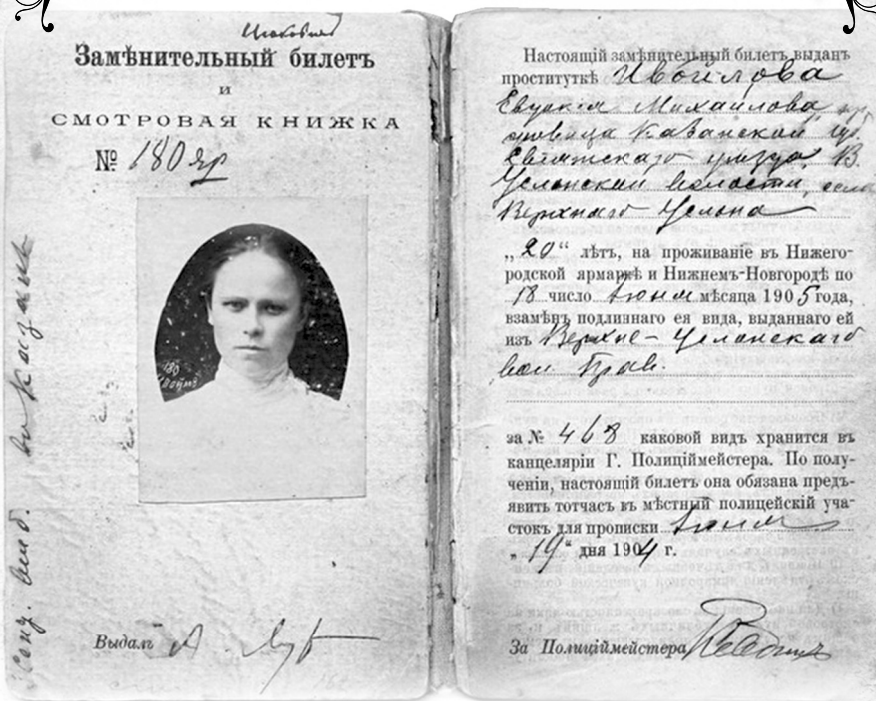 Замѣнительный билетъ
и
СМОТРОВАЯ КНИЖКА
№ 180 яр
180
Выдалъ А.
Настоящій замѣнительный билетъ выданъ
проституткѣ Ивойлова
Евдокія Михайлова
Казанской губ.
Свіяжскаго уѣзда В.
Услонской волости, села
Верхняго Услона
„20“ лѣтъ, на проживаніе въ Нижего-
родской ярмаркѣ и Нижнемъ-Новгородѣ по
18 число Іюня мѣсяца 1905 года,
взамѣнъ подлиннаго ея вида, выданнаго ей
изъ Верхне-Услонскаго
вол. Прав.
за № 468 каковой видъ хранится въ
канцеляріи Г. Полиціймейстера. По полу-
ченіи, настоящій билетъ она обязана предъ-
явить тотчасъ въ мѣстный полицейскій уча-
стокъ для прописки Іюня
„19“ дня 1904 г.
За Полиціймейстера